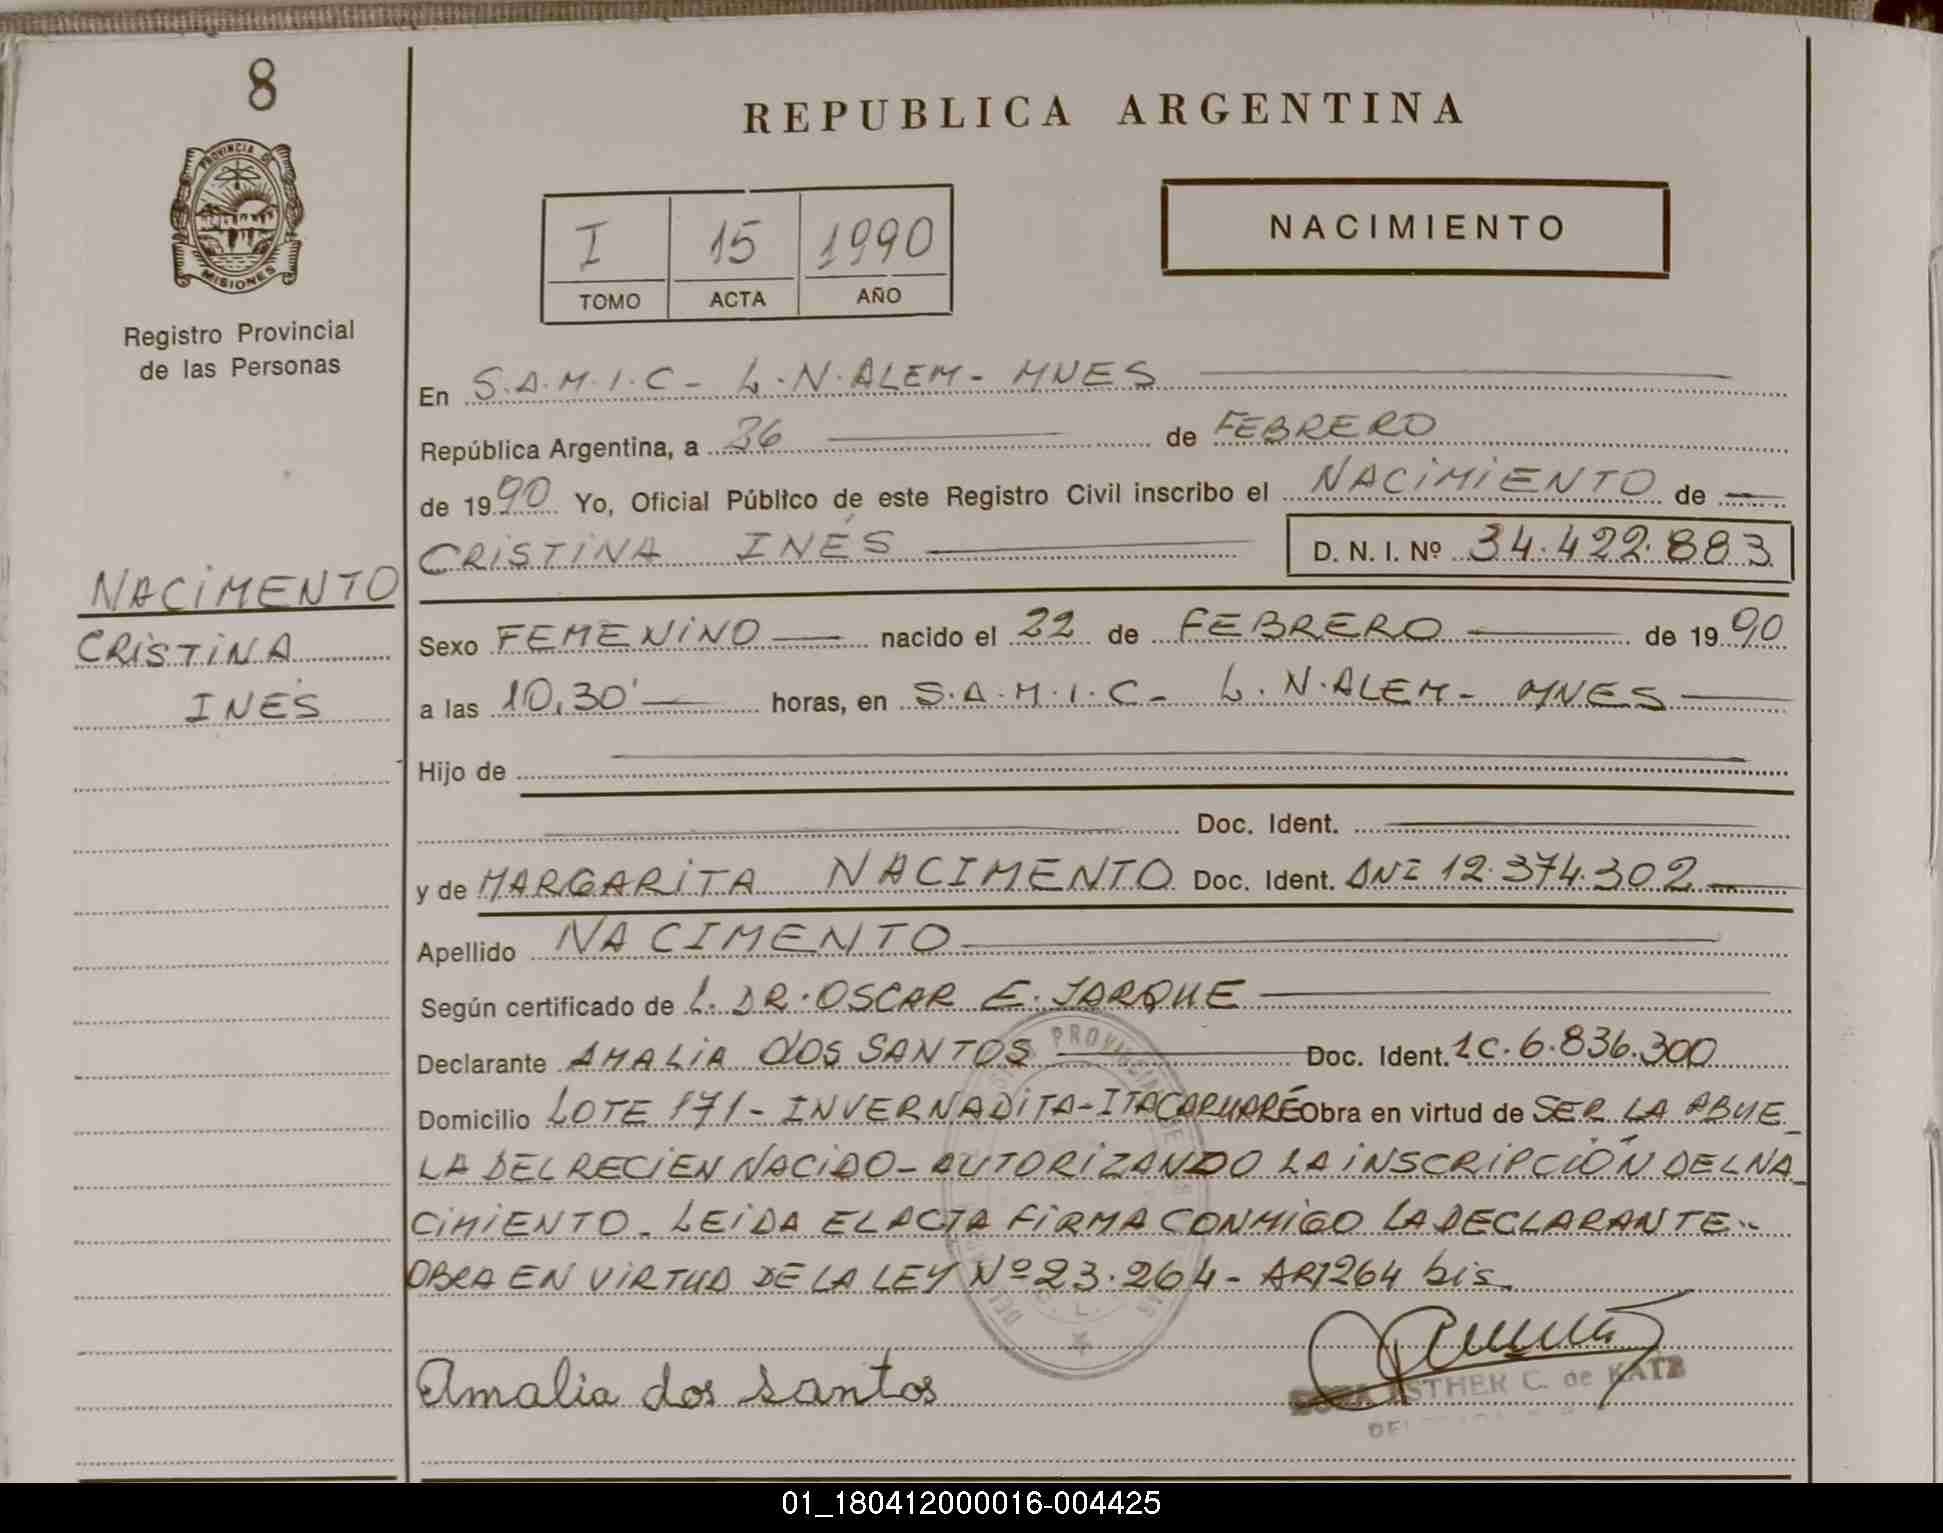 8
REPUBLICA ARGENTINA
PROVINCIA DE
MISIONES
I 15 1990
TOMO ACTA AÑO
NACIMIENTO
Registro Provincial
de las Personas
En S.A.M.I.C - L.N.ALEM - MNES
República Argentina, a 26 de FEBRERO
de 1990 Yo, Oficial Público de este Registro Civil inscribo el NACIMIENTO de
CRISTINA INÉS D. N. I. Nº 34.422.883
NACIMENTO
CRISTINA
INES
Sexo FEMENINO nacido el 22 de FEBRERO de 1990
a las 10,30' horas, en S.A.M.I.C - L.N.ALEM - MNES
Hijo de
Doc. Ident.
y de MARGARITA NACIMENTO Doc. Ident. DNI 12.374.302
Apellido NACIMENTO
Según certificado de L. DR. OSCAR E. JARQUE
Declarante AMALIA DOS SANTOS Doc. Ident. LC. 6.836.300
Domicilio LOTE 171 - INVERNADITA - ITACARUARÉ Obra en virtud de SER LA ABUE_
LA DEL RECIEN NACIDO - AUTORIZANDO LA INSCRIPCIÓN DEL NA_
CIMIENTO - LEIDA EL ACTA FIRMA CONMIGO LA DECLARANTE -
OBRA EN VIRTUD DE LA LEY Nº 23.264 - AR1264 bis.
Amalia dos santos
ESTHER C. de KATZ
01_180412000016-004425